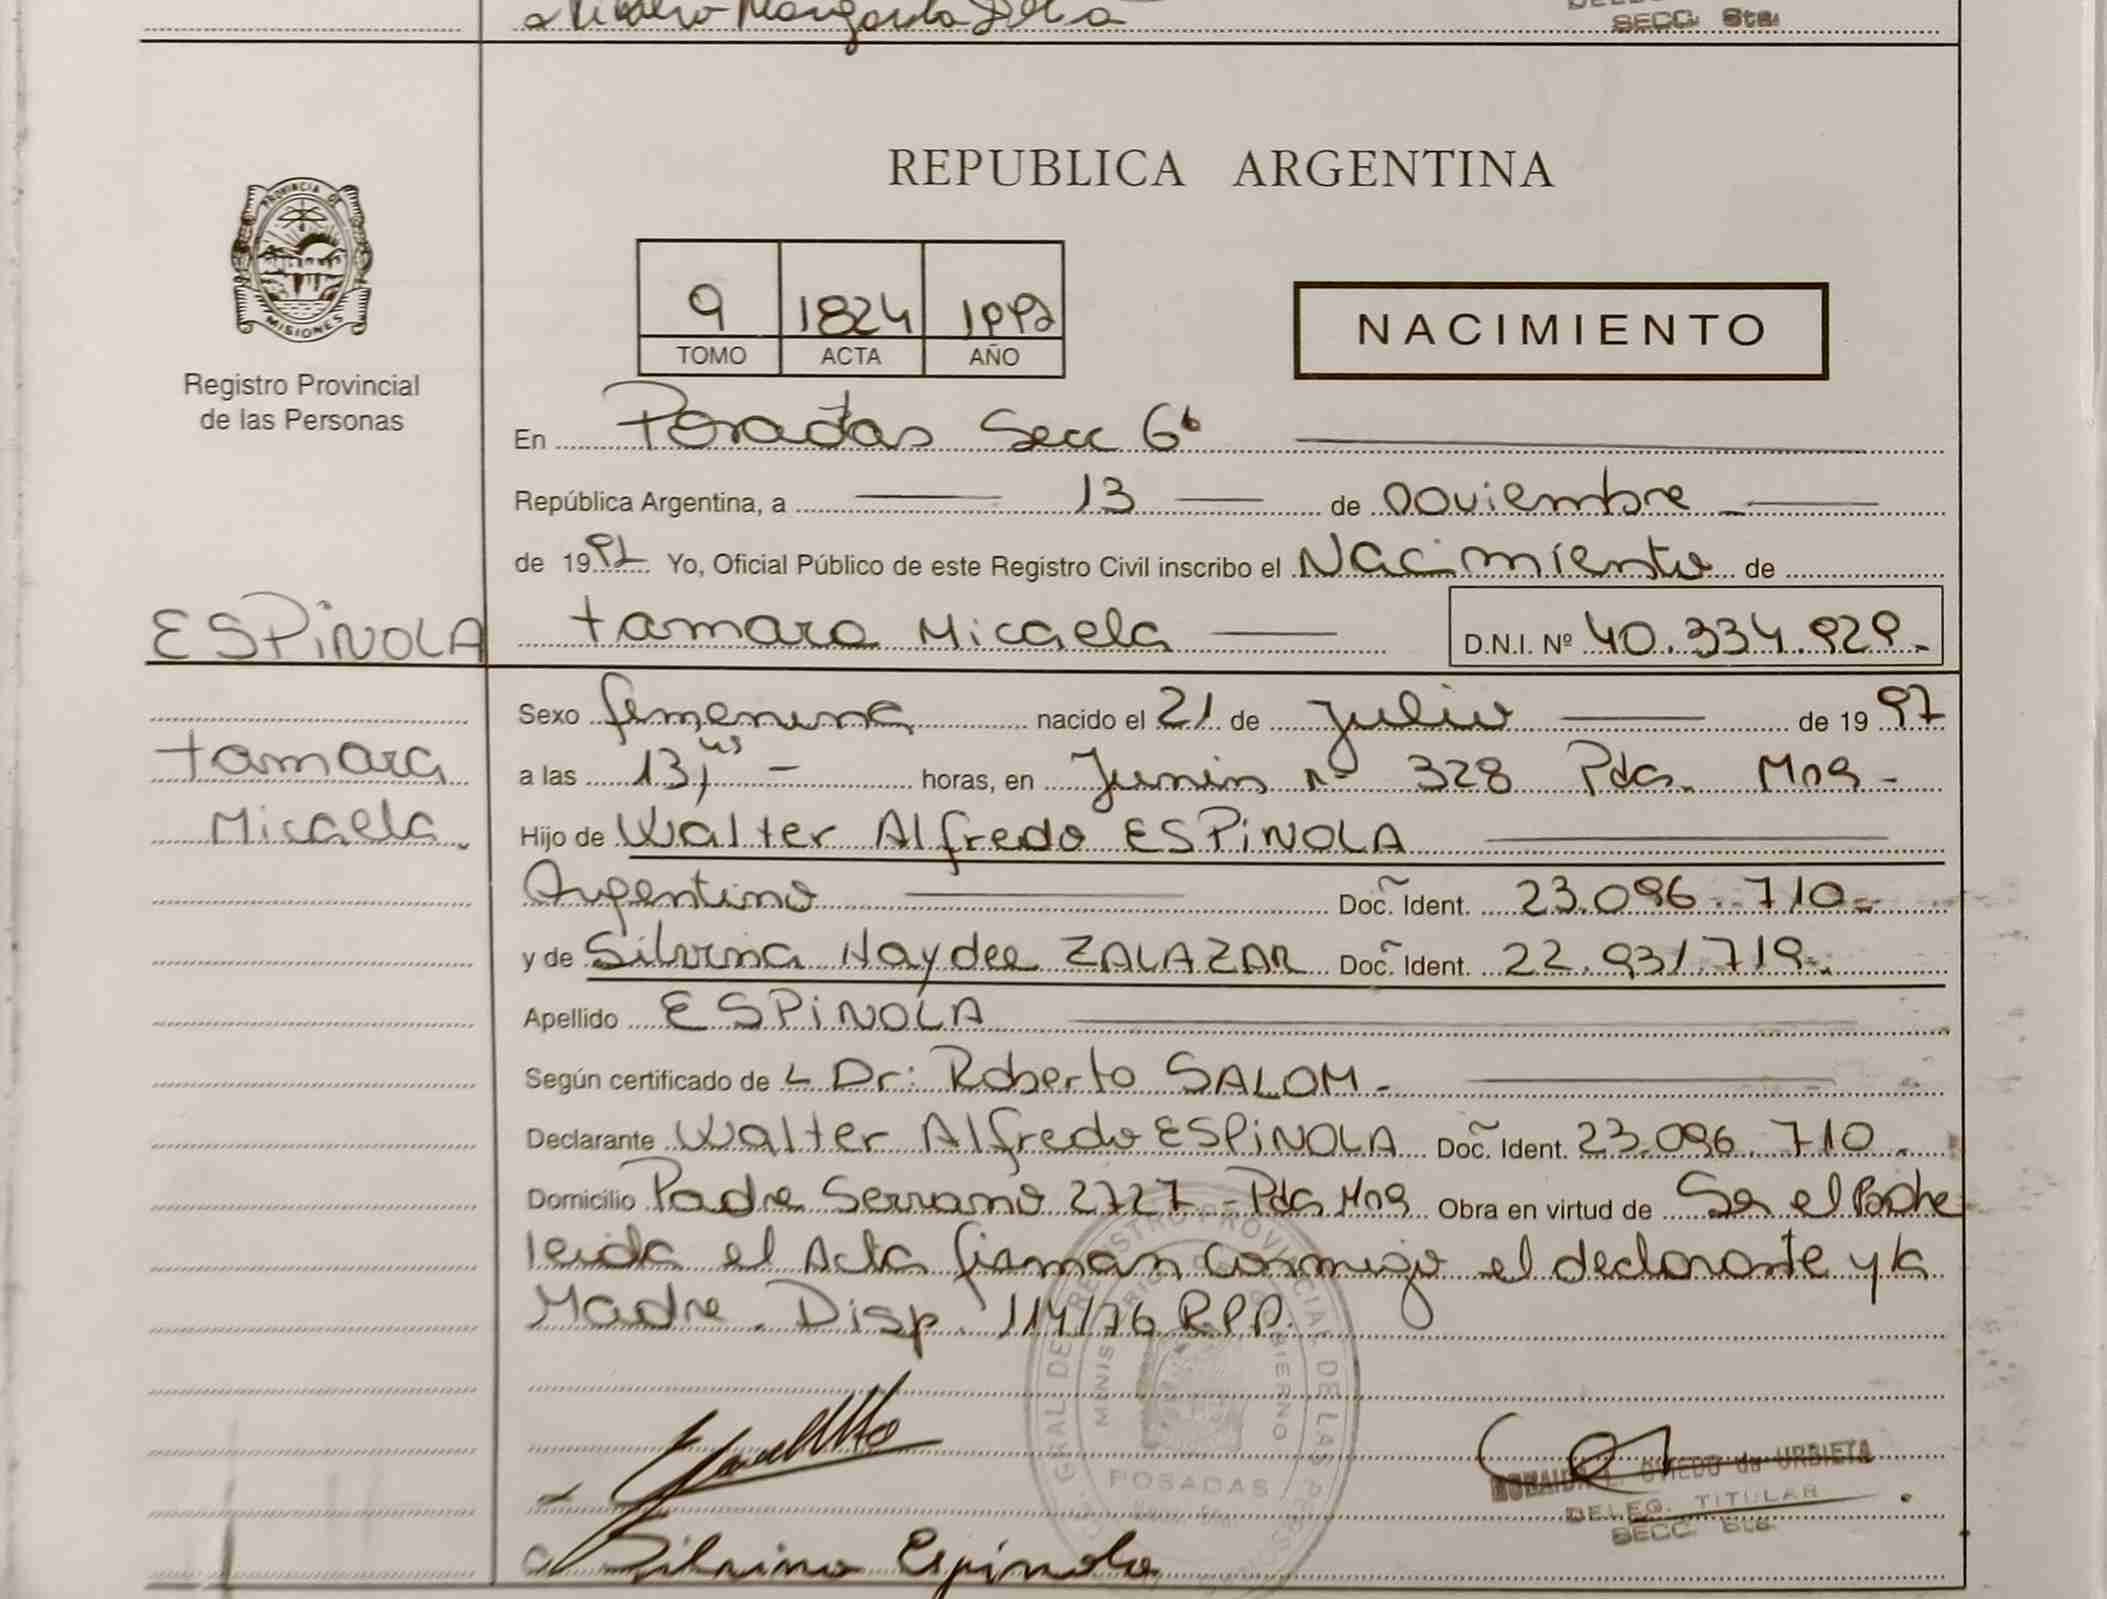 SECC. 6ta.
REPUBLICA ARGENTINA
PROVINCIA DE
MISIONES
Registro Provincial
de las Personas
9 1824 1997
TOMO ACTA AÑO
NACIMIENTO
En Posadas Secc 6ª
República Argentina, a 13 de noviembre
de 1997 Yo, Oficial Público de este Registro Civil inscribo el Nacimiento de
ESPINOLA
Tamara Micaela D.N.I. Nº 40.334.929.-
Sexo femenina nacido el 21 de Julio de 1997
Tamara
a las 13,45 - horas, en Junin nº 328 Pdas. Mns -
Micaela.
Hijo de Walter Alfredo ESPINOLA
Argentino Doc. Ident. 23.096.710.-
y de Silvina Haydee ZALAZAR Doc. Ident. 22.931719-.
Apellido ESPINOLA
Según certificado de L Dr: Roberto SALOM.-
Declarante Walter Alfredo ESPINOLA Doc. Ident. 23.096.710.-
Domicilio Padre Serrano 2727 - Pdas Mns Obra en virtud de Ser el Padre
leida el Acta firman conmigo el declarante y la
Madre. Disp. 114/76 R.P.P.
GRAL DE REGISTRO PROVINCIAL DE LAS PERSONAS
MINISTERIO GOBIERNO
POSADAS
OVIEDO de URBIETA
DELEG. TITULAR
SECC. 6ta.
Silvina Espinola